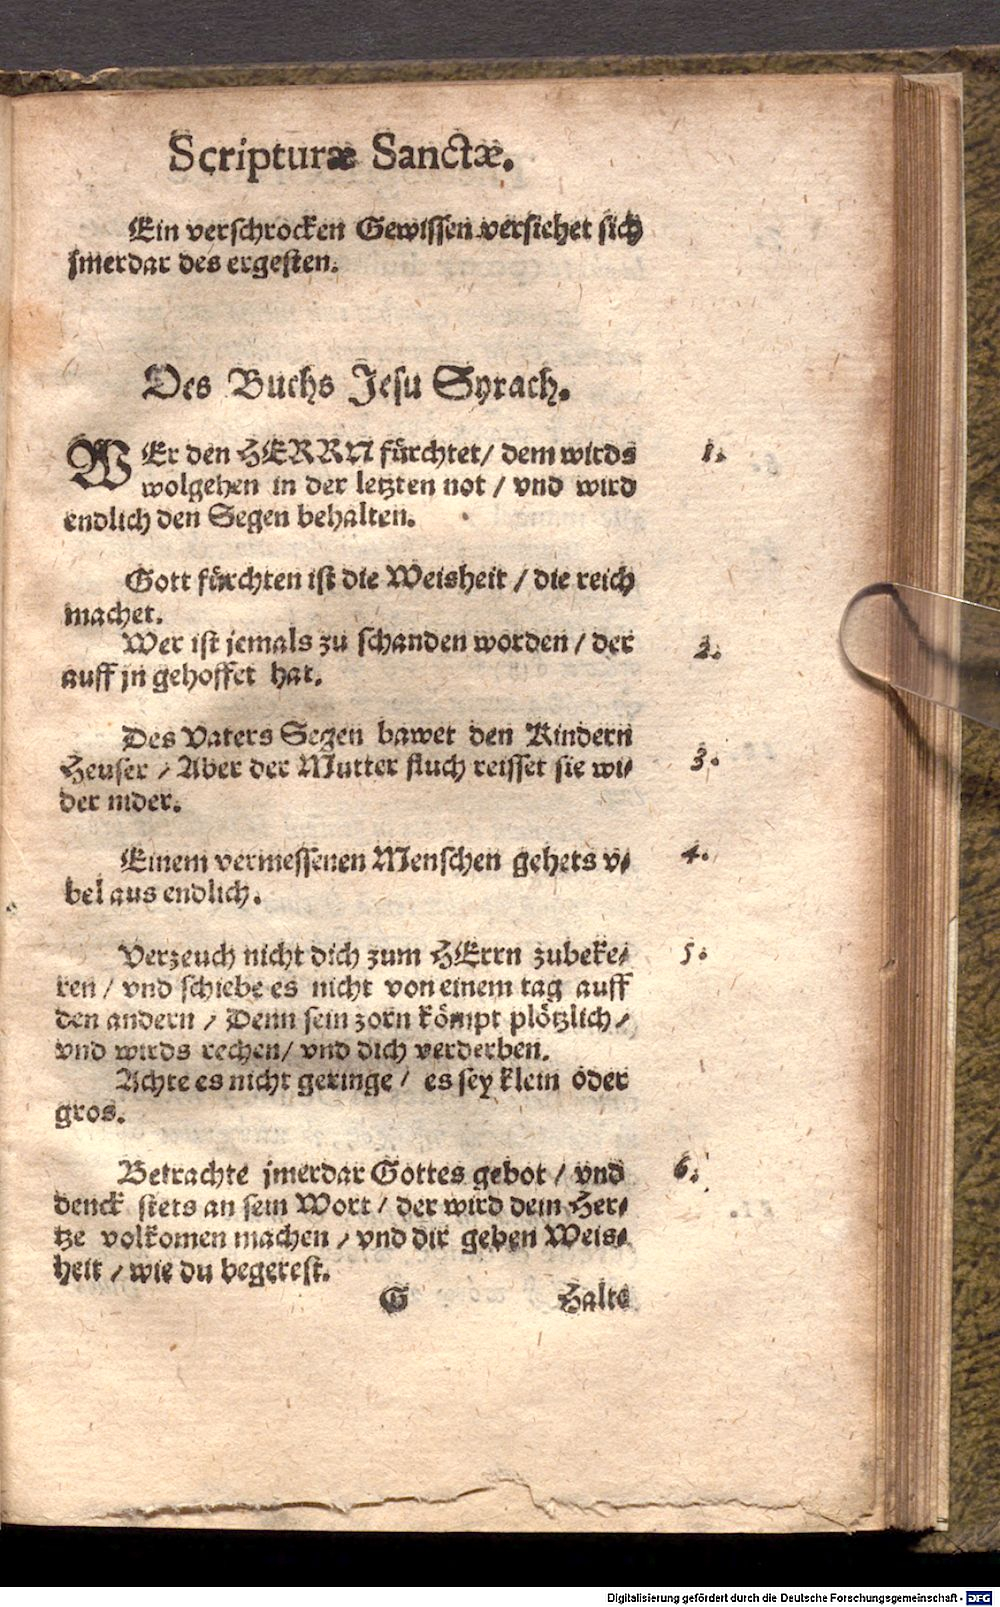 Scripturæ Sanctæ.
Ein verschrocken Gewissen versiehet sich
jmerdar des ergesten.
Des Buchs Jesu Syrach.
WEr den HERRN fürchtet/ dem wirds 1.
wolgehen in der letzten not / vnd wird
endlich den Segen behalten.
Gott fürchten ist die Weisheit / die reich
machet.
Wer ist jemals zu schanden worden / der 2.
auff jn gehoffet hat.
Des Vaters Segen bawet den Kindern
Heuser / Aber der Mutter fluch reisset sie wi- 3.
der nider.
Einem vermessenen Menschen gehets v- 4.
bel aus endlich.
Verzeuch nicht dich zum HErrn zubeke- 5.
ren / vnd schiebe es nicht von einem tag auff
den andern / Denn sein zorn kömpt plötzlich /
vnd wirds rechen/ vnd dich verderben.
Achte es nicht geringe / es sey klein oder
gros.
Betrachte jmerdar Gottes gebot / vnd 6.
denck stets an sein Wort / der wird dein Her-
tze volkomen machen / vnd dir geben Weis-
heit / wie du begerest.
G Halte
Digitalisierung gefördert durch die Deutsche Forschungsgemeinschaft - DFG